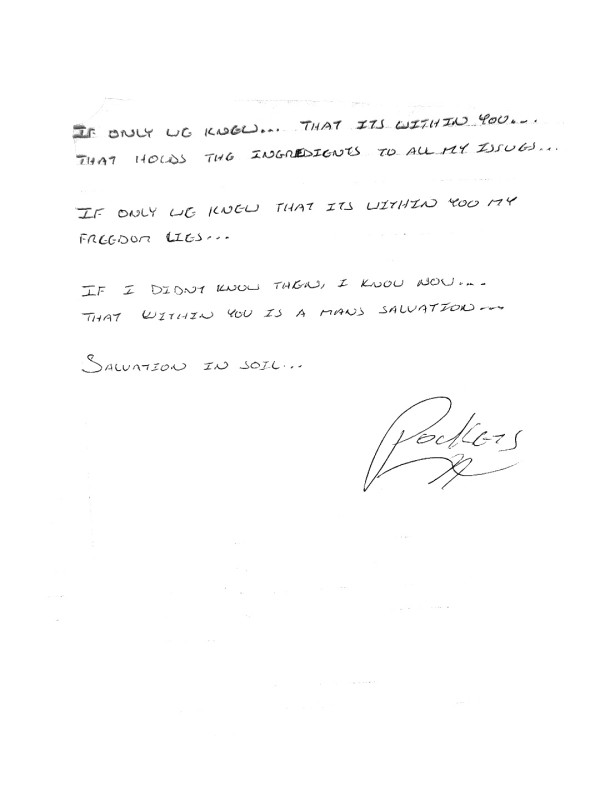 IF ONLY WE KNEW... THAT ITS WITHIN YOU...
THAT HOLDS THE INGREDIENTS TO ALL MY ISSUES...
IF ONLY WE KNEW THAT ITS WITHIN YOU MY
FREEDOM LIES...
IF I DIDNT KNOW THEN, I KNOW NOW...
THAT WITHIN YOU IS A MANS SALVATION...
SALVATION IN SOIL...
Pockets